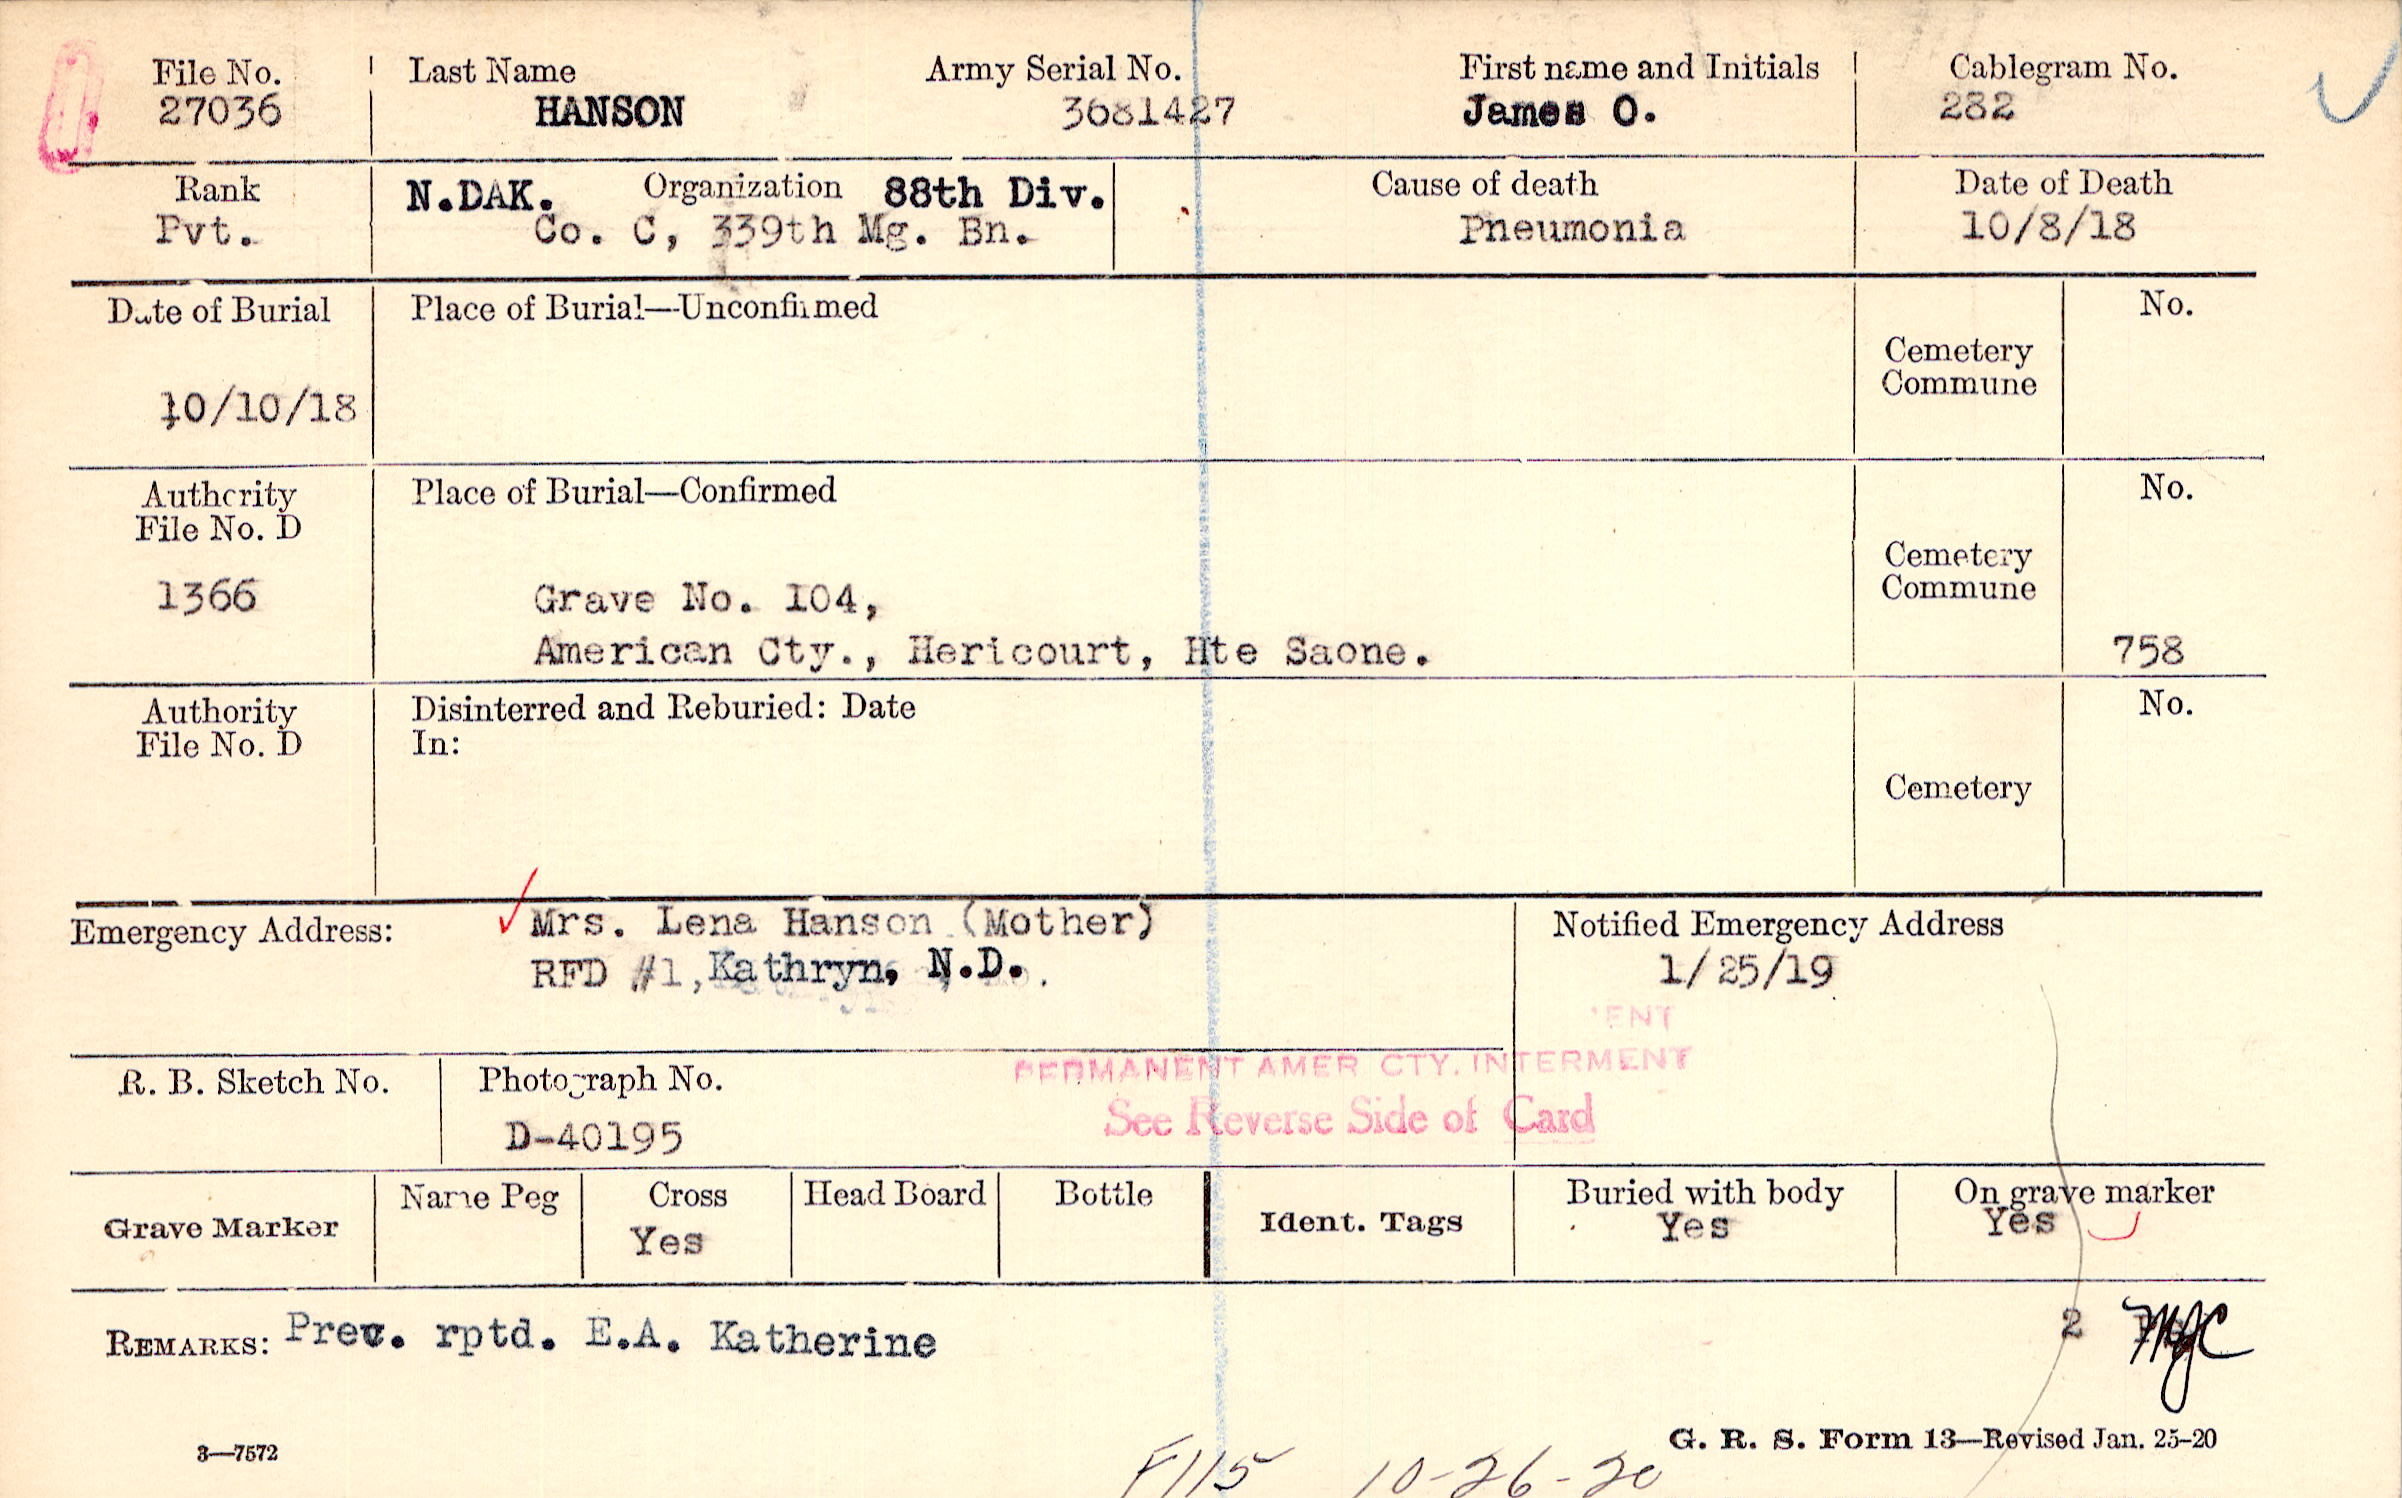 File No. Last Name Army Serial No. First name and Initials Cablegram No.
27036 HANSON 3681427 James O. 282
Rank N.DAK. Organization 88th Div. Cause of death Date of Death
Pvt. Co. C, 339th Mg. Bn. Pneumonia 10/8/18
Date of Burial Place of Burial—Unconfirmed No.
Cemetery
Commune
10/10/18
Authority Place of Burial—Confirmed No.
File No. D
Cemetery
Commune
1366 Grave No. 104,
American Cty., Hericourt, Hte Saone. 758
Authority Disinterred and Reburied: Date No.
File No. D In:
Cemetery
Emergency Address: Mrs. Lena Hanson (Mother) Notified Emergency Address
RFD #1, Kathryn, N.D. 1/25/19
ENT
PERMANENT AMER CTY. INTERMENT
R. B. Sketch No. Photograph No.
See Reverse Side of Card
D-40195
Grave Marker Name Peg Cross Head Board Bottle Ident. Tags Buried with body On grave marker
Yes Yes Yes
REMARKS: Prev. rptd. E.A. Katherine 2 MJC
3—7572 G. R. S. Form 13—Revised Jan. 25-20
F115 10-26-20